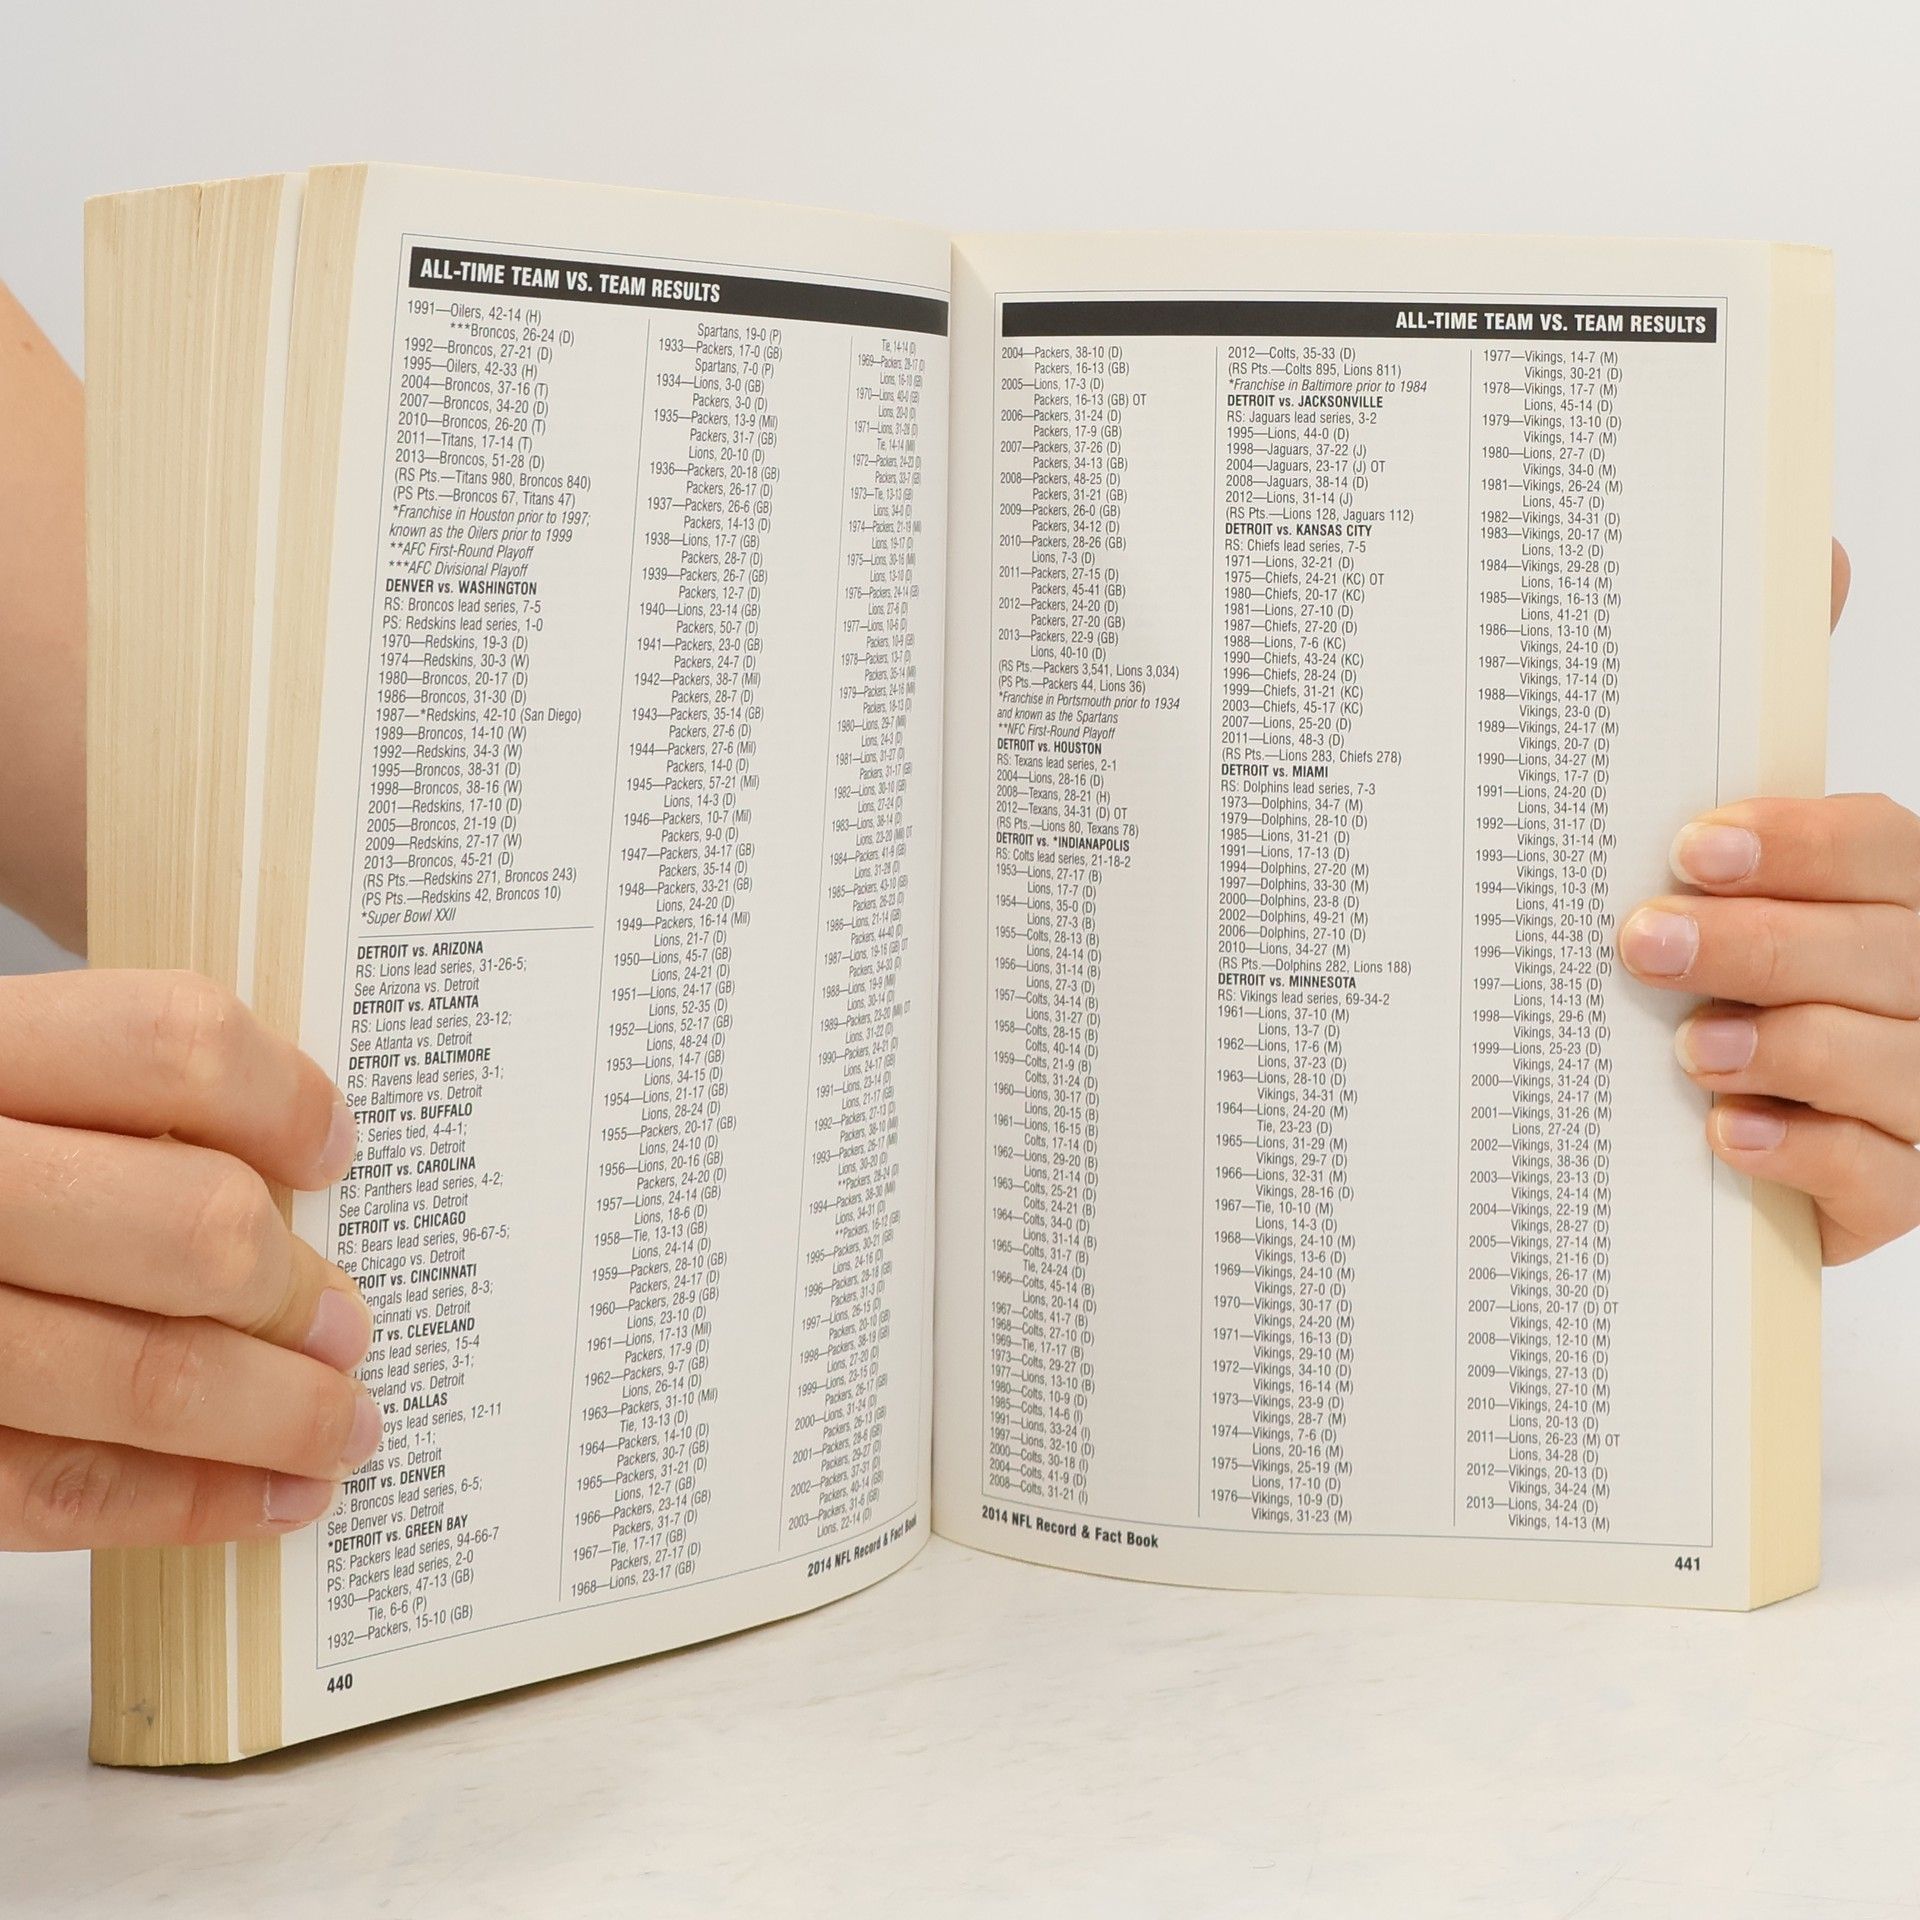 ALL-TIME TEAM VS. TEAM RESULTS
1991—Oilers, 42-14 (H)
***Broncos, 26-24 (D)
1992—Broncos, 27-21 (D)
1995—Oilers, 42-33 (H)
2004—Broncos, 37-16 (T)
2007—Broncos, 34-20 (D)
2010—Broncos, 26-20 (T)
2011—Titans, 17-14 (T)
2013—Broncos, 51-28 (D)
(RS Pts.—Titans 980, Broncos 840)
(PS Pts.—Broncos 67, Titans 47)
*Franchise in Houston prior to 1997;
known as the Oilers prior to 1999
**AFC First-Round Playoff
***AFC Divisional Playoff
DENVER vs. WASHINGTON
RS: Broncos lead series, 7-5
PS: Redskins lead series, 1-0
1970—Redskins, 19-3 (D)
1974—Redskins, 30-3 (W)
1980—Broncos, 20-17 (D)
1986—Broncos, 31-30 (D)
1987—*Redskins, 42-10 (San Diego)
1989—Broncos, 14-10 (W)
1992—Redskins, 34-3 (W)
1995—Broncos, 38-31 (D)
1998—Broncos, 38-16 (W)
2001—Redskins, 17-10 (D)
2005—Broncos, 21-19 (D)
2009—Redskins, 27-17 (W)
2013—Broncos, 45-21 (D)
(RS Pts.—Redskins 271, Broncos 243)
(PS Pts.—Redskins 42, Broncos 10)
*Super Bowl XXII
DETROIT vs. ARIZONA
RS: Lions lead series, 31-26-5;
See Arizona vs. Detroit
DETROIT vs. ATLANTA
RS: Lions lead series, 23-12;
See Atlanta vs. Detroit
DETROIT vs. BALTIMORE
RS: Ravens lead series, 3-1;
See Baltimore vs. Detroit
ETROIT vs. BUFFALO
: Series tied, 4-4-1;
e Buffalo vs. Detroit
ETROIT vs. CAROLINA
RS: Panthers lead series, 4-2;
See Carolina vs. Detroit
DETROIT vs. CHICAGO
RS: Bears lead series, 96-67-5;
See Chicago vs. Detroit
TROIT vs. CINCINNATI
engals lead series, 8-3;
cinnati vs. Detroit
IT vs. CLEVELAND
ons lead series, 15-4
ions lead series, 3-1;
eveland vs. Detroit
vs. DALLAS
oys lead series, 12-11
s tied, 1-1;
allas vs. Detroit
TROIT vs. DENVER
S: Broncos lead series, 6-5;
See Denver vs. Detroit
*DETROIT vs. GREEN BAY
RS: Packers lead series, 94-66-7
PS: Packers lead series, 2-0
1930—Packers, 47-13 (GB)
Tie, 6-6 (P)
1932—Packers, 15-10 (GB)
Spartans, 19-0 (P)
1933—Packers, 17-0 (GB)
Spartans, 7-0 (P)
1934—Lions, 3-0 (GB)
Packers, 3-0 (D)
1935—Packers, 13-9 (Mil)
Packers, 31-7 (GB)
Lions, 20-10 (D)
1936—Packers, 20-18 (GB)
Packers, 26-17 (D)
1937—Packers, 26-6 (GB)
Packers, 14-13 (D)
1938—Lions, 17-7 (GB)
Packers, 28-7 (D)
1939—Packers, 26-7 (GB)
Packers, 12-7 (D)
1940—Lions, 23-14 (GB)
Packers, 50-7 (D)
1941—Packers, 23-0 (GB)
Packers, 24-7 (D)
1942—Packers, 38-7 (Mil)
Packers, 28-7 (D)
1943—Packers, 35-14 (GB)
Packers, 27-6 (D)
1944—Packers, 27-6 (Mil)
Packers, 14-0 (D)
1945—Packers, 57-21 (Mil)
Lions, 14-3 (D)
1946—Packers, 10-7 (Mil)
Packers, 9-0 (D)
1947—Packers, 34-17 (GB)
Packers, 35-14 (D)
1948—Packers, 33-21 (GB)
Lions, 24-20 (D)
1949—Packers, 16-14 (Mil)
Lions, 21-7 (D)
1950—Lions, 45-7 (GB)
Lions, 24-21 (D)
1951—Lions, 24-17 (GB)
Lions, 52-35 (D)
1952—Lions, 52-17 (GB)
Lions, 48-24 (D)
1953—Lions, 14-7 (GB)
Lions, 34-15 (D)
1954—Lions, 21-17 (GB)
Lions, 28-24 (D)
1955—Packers, 20-17 (GB)
Lions, 24-10 (D)
1956—Lions, 20-16 (GB)
Packers, 24-20 (D)
1957—Lions, 24-14 (GB)
Lions, 18-6 (D)
1958—Tie, 13-13 (GB)
Lions, 24-14 (D)
1959—Packers, 28-10 (GB)
Packers, 24-17 (D)
1960—Packers, 28-9 (GB)
Lions, 23-10 (D)
1961—Lions, 17-13 (Mil)
Packers, 17-9 (D)
1962—Packers, 9-7 (GB)
Lions, 26-14 (D)
1963—Packers, 31-10 (Mil)
Tie, 13-13 (D)
1964—Packers, 14-10 (D)
Packers, 30-7 (GB)
1965—Packers, 31-21 (D)
Lions, 12-7 (GB)
1966—Packers, 23-14 (GB)
Packers, 31-7 (D)
1967—Tie, 17-17 (GB)
Packers, 27-17 (D)
1968—Lions, 23-17 (GB)
Tie, 14-14 (D)
1969—Packers, 28-17 (D)
Lions, 16-10 (GB)
1970—Lions, 40-0 (GB)
Lions, 20-0 (D)
1971—Lions, 31-28 (D)
Tie, 14-14 (Mil)
1972—Packers, 24-23 (D)
Packers, 33-7 (GB)
1973—Tie, 13-13 (GB)
Lions, 34-0 (D)
1974—Packers, 21-19 (Mil)
Lions, 19-17 (D)
1975—Lions, 30-16 (Mil)
Lions, 13-10 (D)
1976—Packers, 24-14 (GB)
Lions, 27-6 (D)
1977—Lions, 10-6 (D)
Packers, 10-9 (GB)
1978—Packers, 13-7 (D)
Packers, 35-14 (Mil)
1979—Packers, 24-16 (Mil)
Packers, 18-13 (D)
1980—Lions, 29-7 (Mil)
Lions, 24-3 (D)
1981—Lions, 31-27 (D)
Packers, 31-17 (GB)
1982—Lions, 30-10 (GB)
Lions, 27-24 (D)
1983—Lions, 38-14 (D)
Lions, 23-20 (Mil) OT
1984—Packers, 41-9 (GB)
Lions, 31-28 (D)
1985—Packers, 43-10 (GB)
Packers, 26-23 (D)
1986—Lions, 21-14 (GB)
Packers, 44-40 (D)
1987—Lions, 19-16 (GB) OT
Packers, 34-33 (D)
1988—Lions, 19-9 (Mil)
Lions, 30-14 (D)
1989—Packers, 23-20 (Mil) OT
Lions, 31-22 (D)
1990—Packers, 24-21 (D)
Lions, 24-17 (GB)
1991—Lions, 23-14 (D)
Lions, 21-17 (GB)
1992—Packers, 27-13 (D)
Packers, 38-10 (Mil)
1993—Packers, 26-17 (Mil)
Lions, 30-20 (D)
**Packers, 28-24 (D)
1994—Packers, 38-30 (Mil)
Lions, 34-31 (D)
**Packers, 16-12 (GB)
1995—Packers, 30-21 (GB)
Lions, 24-16 (D)
1996—Packers, 28-18 (GB)
Packers, 31-3 (D)
1997—Lions, 26-15 (D)
Packers, 20-10 (GB)
1998—Packers, 38-19 (GB)
Lions, 27-20 (D)
1999—Lions, 23-15 (D)
Packers, 26-17 (GB)
2000—Lions, 31-24 (D)
Packers, 26-13 (GB)
2001—Packers, 28-6 (GB)
Packers, 29-27 (D)
2002—Packers, 37-31 (D)
Packers, 40-14 (GB)
2003—Packers, 31-6 (GB)
Lions, 22-14 (D)
2014 NFL Record & Fact Book
440
ALL-TIME TEAM VS. TEAM RESULTS
2004—Packers, 38-10 (D)
Packers, 16-13 (GB)
2005—Lions, 17-3 (D)
Packers, 16-13 (GB) OT
2006—Packers, 31-24 (D)
Packers, 17-9 (GB)
2007—Packers, 37-26 (D)
Packers, 34-13 (GB)
2008—Packers, 48-25 (D)
Packers, 31-21 (GB)
2009—Packers, 26-0 (GB)
Packers, 34-12 (D)
2010—Packers, 28-26 (GB)
Lions, 7-3 (D)
2011—Packers, 27-15 (D)
Packers, 45-41 (GB)
2012—Packers, 24-20 (D)
Packers, 27-20 (GB)
2013—Packers, 22-9 (GB)
Lions, 40-10 (D)
(RS Pts.—Packers 3,541, Lions 3,034)
(PS Pts.—Packers 44, Lions 36)
*Franchise in Portsmouth prior to 1934
and known as the Spartans
**NFC First-Round Playoff
DETROIT vs. HOUSTON
RS: Texans lead series, 2-1
2004—Lions, 28-16 (D)
2008—Texans, 28-21 (H)
2012—Texans, 34-31 (D) OT
(RS Pts.—Lions 80, Texans 78)
DETROIT vs. *INDIANAPOLIS
RS: Colts lead series, 21-18-2
1953—Lions, 27-17 (B)
Lions, 17-7 (D)
1954—Lions, 35-0 (D)
Lions, 27-3 (B)
1955—Colts, 28-13 (B)
Lions, 24-14 (D)
1956—Lions, 31-14 (B)
Lions, 27-3 (D)
1957—Colts, 34-14 (B)
Lions, 31-27 (D)
1958—Colts, 28-15 (B)
Colts, 40-14 (D)
1959—Colts, 21-9 (B)
Colts, 31-24 (D)
1960—Lions, 30-17 (D)
Lions, 20-15 (B)
1961—Lions, 16-15 (B)
Colts, 17-14 (D)
1962—Lions, 29-20 (B)
Lions, 21-14 (D)
1963—Colts, 25-21 (D)
Colts, 24-21 (B)
1964—Colts, 34-0 (D)
Lions, 31-14 (B)
1965—Colts, 31-7 (B)
Tie, 24-24 (D)
1966—Colts, 45-14 (B)
Lions, 20-14 (D)
1967—Colts, 41-7 (B)
1968—Colts, 27-10 (D)
1969—Tie, 17-17 (B)
1973—Colts, 29-27 (D)
1977—Lions, 13-10 (B)
1980—Colts, 10-9 (D)
1985—Colts, 14-6 (I)
1991—Lions, 33-24 (I)
1997—Lions, 32-10 (D)
2000—Colts, 30-18 (I)
2004—Colts, 41-9 (D)
2008—Colts, 31-21 (I)
2012—Colts, 35-33 (D)
(RS Pts.—Colts 895, Lions 811)
*Franchise in Baltimore prior to 1984
DETROIT vs. JACKSONVILLE
RS: Jaguars lead series, 3-2
1995—Lions, 44-0 (D)
1998—Jaguars, 37-22 (J)
2004—Jaguars, 23-17 (J) OT
2008—Jaguars, 38-14 (D)
2012—Lions, 31-14 (J)
(RS Pts.—Lions 128, Jaguars 112)
DETROIT vs. KANSAS CITY
RS: Chiefs lead series, 7-5
1971—Lions, 32-21 (D)
1975—Chiefs, 24-21 (KC) OT
1980—Chiefs, 20-17 (KC)
1981—Lions, 27-10 (D)
1987—Chiefs, 27-20 (D)
1988—Lions, 7-6 (KC)
1990—Chiefs, 43-24 (KC)
1996—Chiefs, 28-24 (D)
1999—Chiefs, 31-21 (KC)
2003—Chiefs, 45-17 (KC)
2007—Lions, 25-20 (D)
2011—Lions, 48-3 (D)
(RS Pts.—Lions 283, Chiefs 278)
DETROIT vs. MIAMI
RS: Dolphins lead series, 7-3
1973—Dolphins, 34-7 (M)
1979—Dolphins, 28-10 (D)
1985—Lions, 31-21 (D)
1991—Lions, 17-13 (D)
1994—Dolphins, 27-20 (M)
1997—Dolphins, 33-30 (M)
2000—Dolphins, 23-8 (D)
2002—Dolphins, 49-21 (M)
2006—Dolphins, 27-10 (D)
2010—Lions, 34-27 (M)
(RS Pts.—Dolphins 282, Lions 188)
DETROIT vs. MINNESOTA
RS: Vikings lead series, 69-34-2
1961—Lions, 37-10 (M)
Lions, 13-7 (D)
1962—Lions, 17-6 (M)
Lions, 37-23 (D)
1963—Lions, 28-10 (D)
Vikings, 34-31 (M)
1964—Lions, 24-20 (M)
Tie, 23-23 (D)
1965—Lions, 31-29 (M)
Vikings, 29-7 (D)
1966—Lions, 32-31 (M)
Vikings, 28-16 (D)
1967—Tie, 10-10 (M)
Lions, 14-3 (D)
1968—Vikings, 24-10 (M)
Vikings, 13-6 (D)
1969—Vikings, 24-10 (M)
Vikings, 27-0 (D)
1970—Vikings, 30-17 (D)
Vikings, 24-20 (M)
1971—Vikings, 16-13 (D)
Vikings, 29-10 (M)
1972—Vikings, 34-10 (D)
Vikings, 16-14 (M)
1973—Vikings, 23-9 (D)
Vikings, 28-7 (M)
1974—Vikings, 7-6 (D)
Lions, 20-16 (M)
1975—Vikings, 25-19 (M)
Lions, 17-10 (D)
1976—Vikings, 10-9 (D)
Vikings, 31-23 (M)
1977—Vikings, 14-7 (M)
Vikings, 30-21 (D)
1978—Vikings, 17-7 (M)
Lions, 45-14 (D)
1979—Vikings, 13-10 (D)
Vikings, 14-7 (M)
1980—Lions, 27-7 (D)
Vikings, 34-0 (M)
1981—Vikings, 26-24 (M)
Lions, 45-7 (D)
1982—Vikings, 34-31 (D)
1983—Vikings, 20-17 (M)
Lions, 13-2 (D)
1984—Vikings, 29-28 (D)
Lions, 16-14 (M)
1985—Vikings, 16-13 (M)
Lions, 41-21 (D)
1986—Lions, 13-10 (M)
Vikings, 24-10 (D)
1987—Vikings, 34-19 (M)
Vikings, 17-14 (D)
1988—Vikings, 44-17 (M)
Vikings, 23-0 (D)
1989—Vikings, 24-17 (M)
Vikings, 20-7 (D)
1990—Lions, 34-27 (M)
Vikings, 17-7 (D)
1991—Lions, 24-20 (D)
Lions, 34-14 (M)
1992—Lions, 31-17 (D)
Vikings, 31-14 (M)
1993—Lions, 30-27 (M)
Vikings, 13-0 (D)
1994—Vikings, 10-3 (M)
Lions, 41-19 (D)
1995—Vikings, 20-10 (M)
Lions, 44-38 (D)
1996—Vikings, 17-13 (M)
Vikings, 24-22 (D)
1997—Lions, 38-15 (D)
Lions, 14-13 (M)
1998—Vikings, 29-6 (M)
Vikings, 34-13 (D)
1999—Lions, 25-23 (D)
Vikings, 24-17 (M)
2000—Vikings, 31-24 (D)
Vikings, 24-17 (M)
2001—Vikings, 31-26 (M)
Lions, 27-24 (D)
2002—Vikings, 31-24 (M)
Vikings, 38-36 (D)
2003—Vikings, 23-13 (D)
Vikings, 24-14 (M)
2004—Vikings, 22-19 (M)
Vikings, 28-27 (D)
2005—Vikings, 27-14 (M)
Vikings, 21-16 (D)
2006—Vikings, 26-17 (M)
Vikings, 30-20 (D)
2007—Lions, 20-17 (D) OT
Vikings, 42-10 (M)
2008—Vikings, 12-10 (M)
Vikings, 20-16 (D)
2009—Vikings, 27-13 (D)
Vikings, 27-10 (M)
2010—Vikings, 24-10 (M)
Lions, 20-13 (D)
2011—Lions, 26-23 (M) OT
Lions, 34-28 (D)
2012—Vikings, 20-13 (D)
Vikings, 34-24 (M)
2013—Lions, 34-24 (D)
Vikings, 14-13 (M)
2014 NFL Record & Fact Book
441